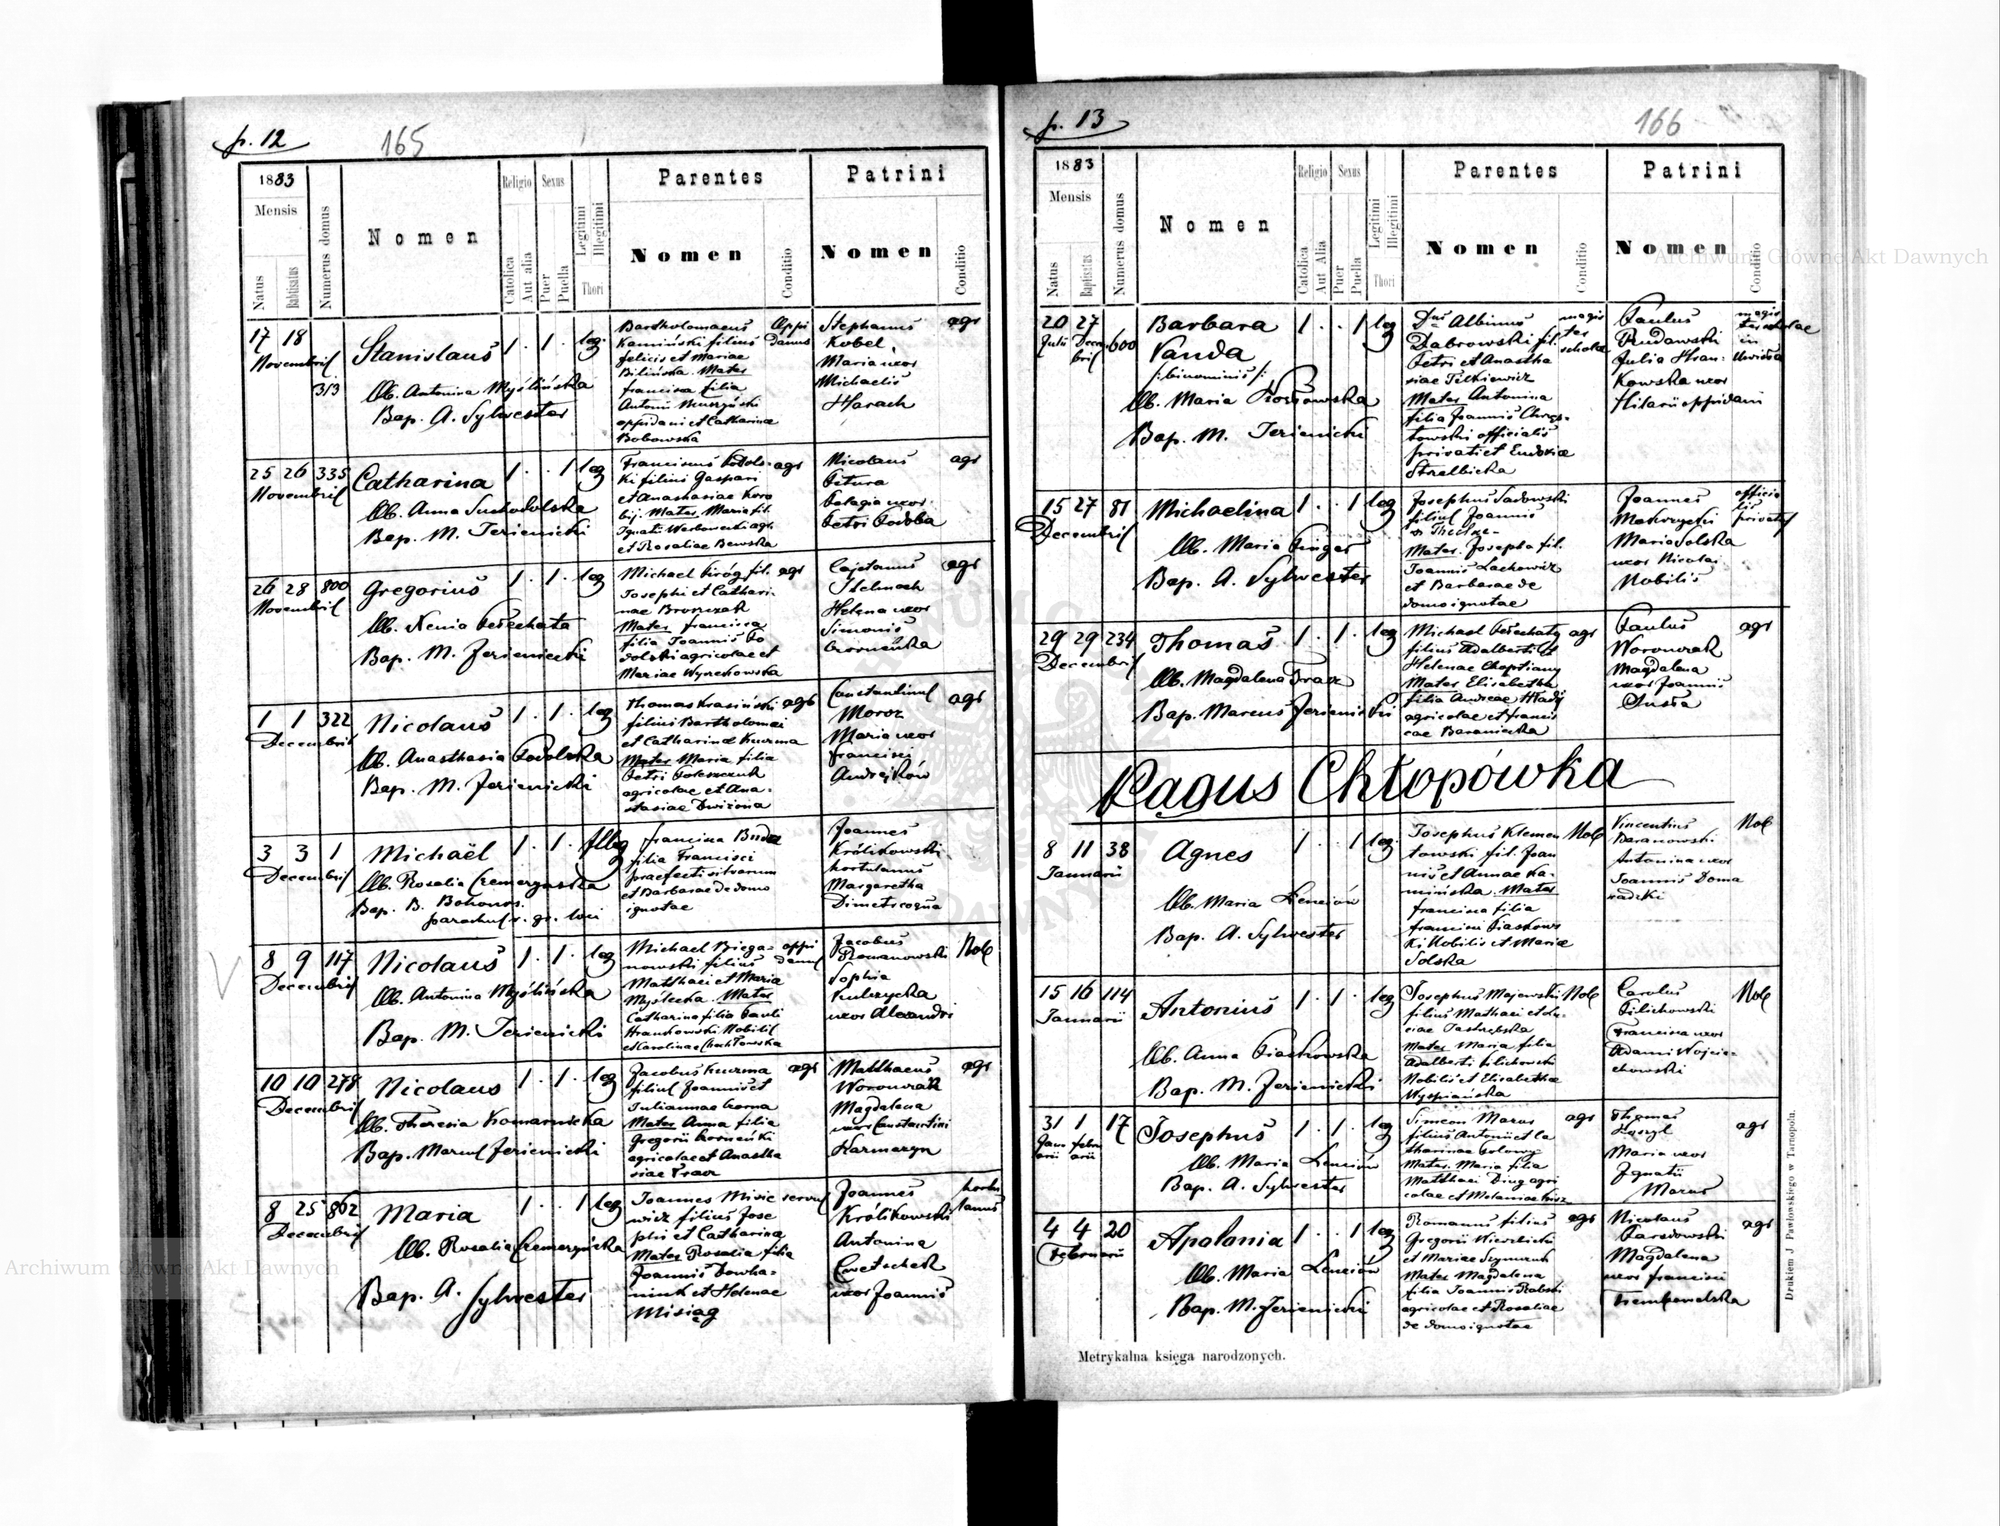 p. 12
165
1883
Mensis
Natus
Babtisatus
Numerus domus
Nomen
Religio
Catolica
Aut alia
Sexus
Puer
Puella
Legitimi
Illegitimi
Thori
Parentes
Nomen
Conditio
Patrini
Nomen
Conditio
17 18 Novembris 313
Stanislaus
Ob. Antonina Myślińska
Bap. A. Sylwester
1 . 1 . leg.
Bartholomaeus
Kamiński filius
felicis et Mariae
Bilińska. Mater
francisca filia
Antonii
oppidani et Catharinae
Bobowska
Oppi
danus
Stephanus
Kobel
Maria uxor
Michaelis
Harach
agr
25 26 335
Novembris
Catharina
Ob. Anna Suchodolska
Bap. M. Terienicki
1 . . 1 leg
Franciscus
ki filius Gaspari
et Anastasiae Koro
bij. Mater Maria fil.
Ignatii Werbowecki agr.
et Rosaliae Bewska
agr
Nicolaus
Pitura
Pelagia uxor
Petri Podoba
agr
26 28 800
Novembris
Gregorius
Ob. Xenia Pełechata
Bap. M. Jerienicki
1 . 1 . leg
Michael Piróg fil.
Josephi et Cathari
nae Bronczak
Mater francisca
filia Joannis Po
dolski agricolae et
Mariae Wynchowska
agr
Cajetanus
Stelmach
Helena uxor
Simonis
agr
1 1 322
Decembris
Nicolaus
Ob. Anasthasia Podolska
Bap. M. Jerienicki
1 . 1 . leg
Thomas Krasiński
filius Bartholomei
et Catharinae Kuzma
Mater Maria filia
Petri Poleszczuk
agricolae et Ana-
stasiae Dwizona
agr
Constantinus
Moroz
Maria uxor
francisci
Andrejków
agr
3 3 1
Decembris
Michaël
Ob. Rosalia Czemerzyńska
Bap. B. Bohonos
parochus r. gr. loci
1 . 1 . Illeg
francisca
filia Francisci
praefecti silvarum
et Barbarae de domo
ignotae
Joannes
Królikowski
hortulanus
Margaretha
8 9 117
Decembris
Nicolaus
Ob. Antonina Myślińska
Bap. M. Jerienicki
1 . 1 . leg
Michael Biega-
nowski filius
Matthaei et Maria
Myslecka. Mater
Catharina filia Pauli
Hrankowski Nobilis
et Karolinae
oppi
danus
Jacobus
Romanowski
Sophia
Kulczycka
uxor Alexandri
Nob
10 10 278
Decembris
Nicolaus
Ob. Theresia Komarnicka
Bap. Marcus Jerienicki
1 . 1 . leg
Jacobus Kuzma
filius Joannis et
Juliannae Czorna
Mater Anna filia
Gregorii
agricolae et Anastha
siae Tracz
agr
Matthaeus
Woronczak
Magdalena
uxor Constantini
Karmazyn
agr
8 25 862
Decembris
Maria
Ob. Rosalia Czemerzyńska
Bap. A. Sylwester
1 . . 1 leg
Joannes Misie
wicz filius Jose
phi et Catharina
Mater Rosalia filia
Joannis Dowha-
niuk et Helenae
Misiąg
servus
Joannes
Królikowski
Antonina
Cwetschek
uxor Joannis
hortu
lanus
p. 13
166
1883
Mensis
Natus
Baptisatus
Numerus domus
Nomen
Religio
Catolica
Aut Alia
Sexus
Puer
Puella
Legitimi
Illegitimi
Thori
Parentes
Nomen
Conditio
Patrini
Nomen
Conditio
20 27 600
Julii Decem
bris
Barbara
Vanda
/:binominis:/
Ob. Maria
Bap. M. Jerienicki
1 . . 1 leg
Dnus Albinus
Dabrowski fil.
Petri et Anastha
siae Titkiewicz
Mater Antonina
filia Joannis Chrzą-
towski officialis
privati et Eudoxiae
Strzelbicka
magis
ter
scholae
Paulus
Rudawski
Julia Hran-
kowska uxor
Hilarii oppidani
magis
ter scholae
in
15 27 81
Decembris
Michaelina
Ob. Maria Pinger
Bap. A. Sylwester
1 . . 1 leg
Josephus Sadowski
filius Joannis
et Theclae
Mater Josepha fil.
Joannis Lackowicz
et Barbarae de
domo ignotae
Joannes
Mokrzycki
Maria Solska
uxor Nicolai
Nobilis
officia
lis
privatus
29 29 234
Decembris
Thomas
Ob. Magdalena Tracz
Bap. Marcus Jerienicki
1 . 1 . leg
Michael Pełechaty
filius Adalberti et
Helenae Choptiany
Mater Elisabetha
filia Andreae Hładÿ
agricolae et francis
cae Baraniecka
agr
Paulus
Woronczak
Magdalena
uxor Joannis
agr
Pagus Chłopówka
8 11 38
Januarii
Agnes
Ob. Maria Lenciów
Bap. A. Sylwester
1 . . 1 leg.
Josephus Klemen
towski fil. Joan
nis et Annae Ka-
mińska. Mater
francisca filia
francisci Piaskows
ki Nobilis et Mariae
Solska
Nob
Vincentius
Baranowski
Antonina uxor
Joannis Doma
radzki
Nob
15 16 114
Januarii
Antonius
Ob. Anna Piaskowska
Bap. M. Jerienicki
1 . 1 . leg
Josephus Majewski
filius Mathaei et Lu-
ciae Jastrzębska
Mater Maria filia
Adalberti Pilichowski
Nobilis et Elisabethae
Wyspiańska
Nob
Carolus
Pilichowski
Francisca uxor
Adami Wojcie-
chowski
Nob
31 1 17
Janu febru
arii arii
Josephus
Ob. Maria Lenciów
Bap. A. Sylwester
1 . 1 . leg
Simeon Maras
filius Antonii et Ca
tharinae
Mater Maria filia
Matthaei Ding agri
colae et Melaniae
agr
Thomas
Maria uxor
Ignatii
Maras
agr
4 4 20
Februarii
Apolonia
Ob. Maria Lenciów
Bap. M. Jerienicki
1 . . 1 leg
Romanus filius
Gregorii
et Mariae Szymczuk
Mater Magdalena
filia Joannis Rabski
agricolae et Rosaliae
de domo ignotae
agr
Nicolaus
Paradowski
Magdalena
uxor francisci
agr
Metrykalna księga narodzonych.
Drukiem J Pawłowskiego w Tarnopolu.
Archiwum Główne Akt Dawnych
Archiwum Główne Akt Dawnych